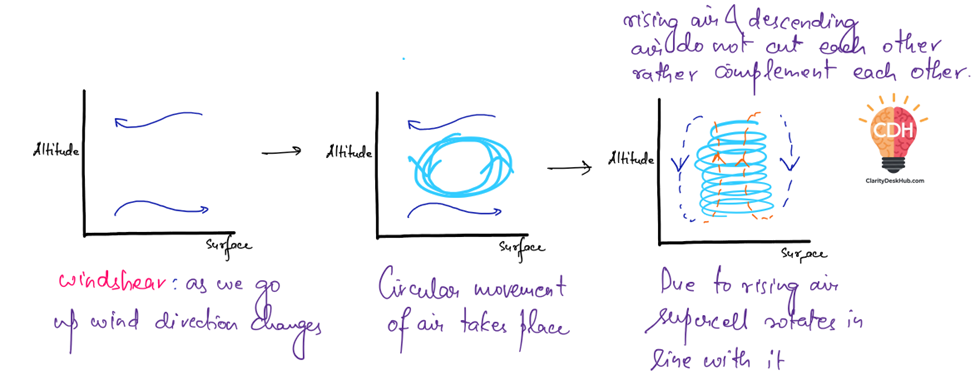 rising air & descending
air do not cut each other
rather complement each other.
CDH
ClarityDeskHub.com
Altitude
Surface
windshear: as we go
up wind direction changes
Altitude
Surface
Circular movement
of air takes place
Altitude
Surface
Due to rising air
supercell rotates in
line with it